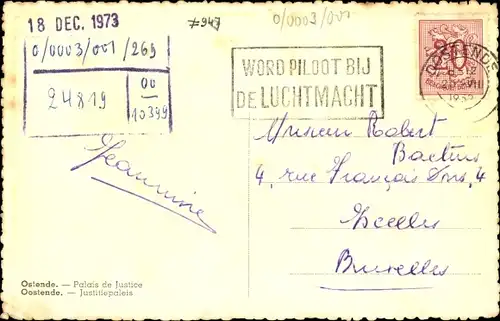 18 DEC. 1973
#947
0/0003/001
0/0003/001/269
24819
00
10399
WORD PILOOT BIJ
DE LUCHTMACHT
OOSTENDE
Jeannine
Monsieur Robert
4, rue François Dons, 4
Ixelles
Bruxelles
Ostende. — Palais de Justice
Oostende. — Justitiepaleis